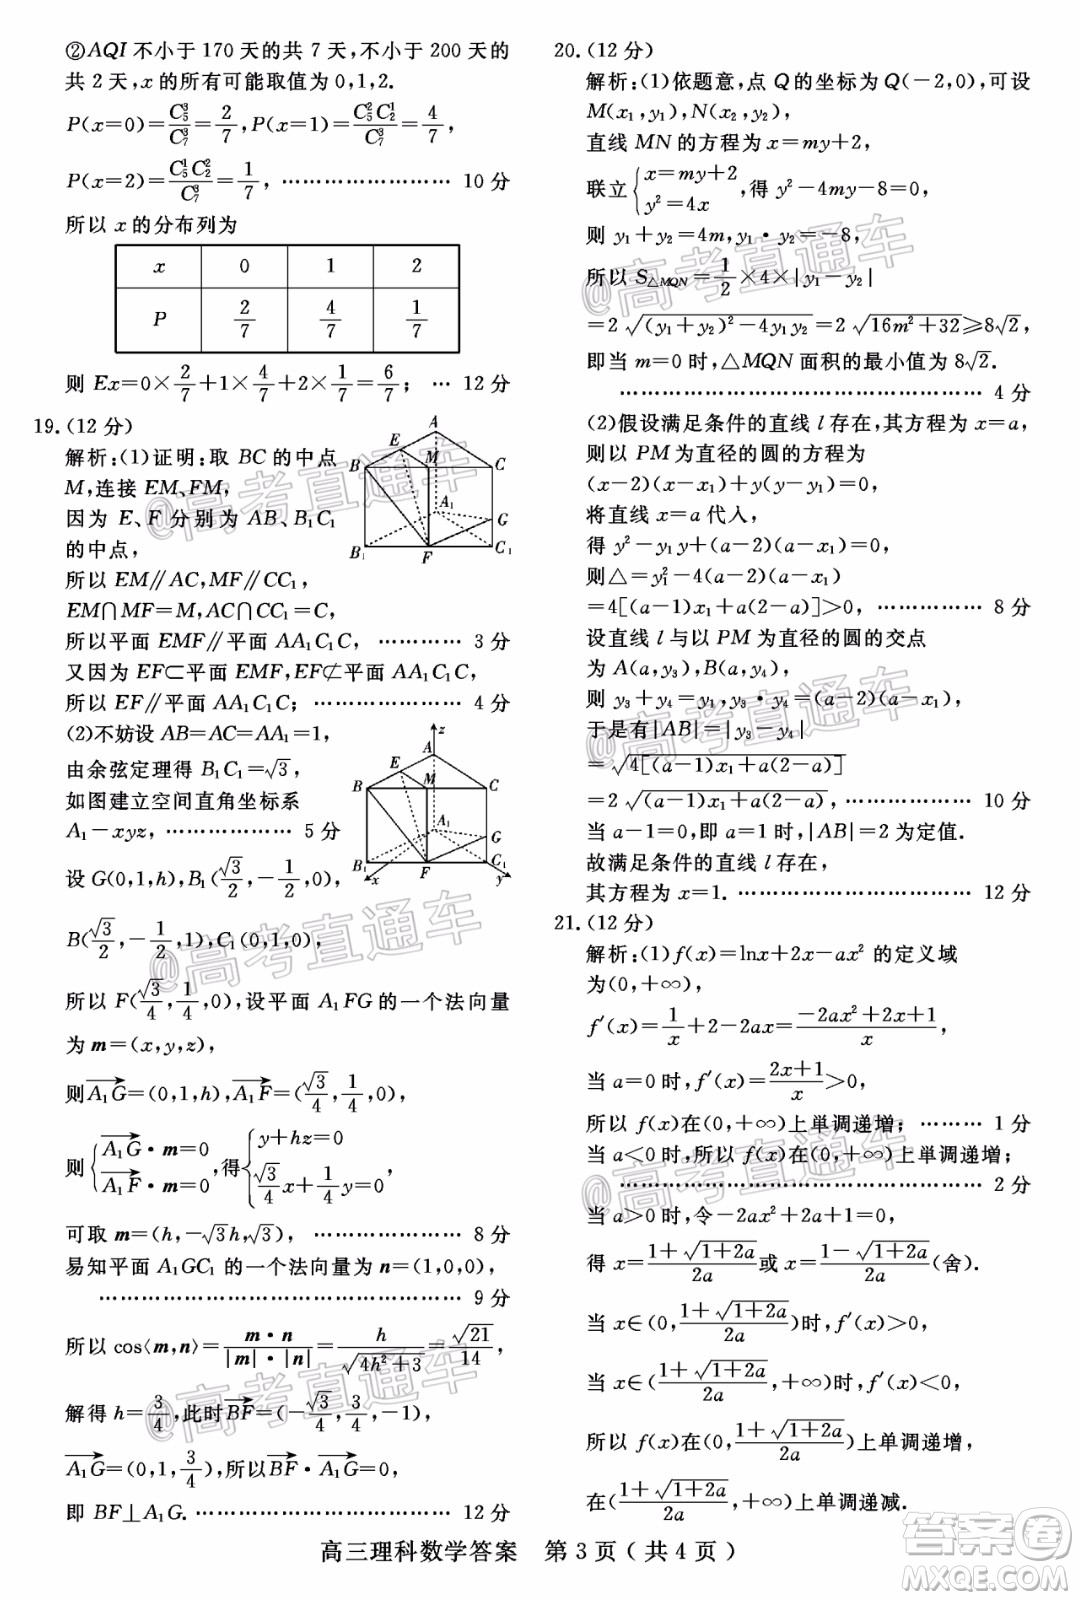 ②AQI 不小于 170 天的共 7 天,不小于 200 天的
共 2 天,x 的所有可能取值为 0,1,2.
P(x=0)=C₅³/C₇³=2/7,P(x=1)=C₅²C₂¹/C₇³=4/7,
P(x=2)=C₅¹C₂²/C₇³=1/7, ……………………… 10 分
所以 x 的分布列为
x 0 1 2
P 2/7 4/7 1/7
则 Ex=0×2/7+1×4/7+2×1/7=6/7; … 12 分
19.(12 分)
解析:(1)证明:取 BC 的中点
M,连接 EM、FM,
因为 E、F 分别为 AB、B₁C₁
的中点,
所以 EM∥AC,MF∥CC₁,
EM∩MF=M,AC∩CC₁=C,
所以平面 EMF∥平面 AA₁C₁C, ………… 3 分
又因为 EF⊂平面 EMF,EF⊄平面 AA₁C₁C,
所以 EF∥平面 AA₁C₁C; ………………… 4 分
A
E
B
M
C
A₁
G
B₁
F
C₁
(2)不妨设 AB=AC=AA₁=1,
由余弦定理得 B₁C₁=√3,
如图建立空间直角坐标系
A₁-xyz, ……………… 5 分
设 G(0,1,h),B₁(√3/2,-1/2,0),
B(√3/2,-1/2,1),C₁(0,1,0),
z
A
E
B
M
C
A₁
G
B₁
F
C₁
x
y
所以 F(√3/4,1/4,0),设平面 A₁FG 的一个法向量
为 m=(x,y,z),
则A₁G→=(0,1,h),A₁F→=(√3/4,1/4,0),
则{A₁G→·m=0 A₁F→·m=0,得{y+hz=0 √3/4x+1/4y=0,
可取 m=(h,-√3h,√3), ………………… 8 分
易知平面 A₁GC₁ 的一个法向量为 n=(1,0,0),
……………………………………………… 9 分
所以 cos⟨m,n⟩=m·n/|m|·|n|=h/√(4h²+3)=√21/14,
解得 h=3/4,此时BF→=(-√3/4,3/4,-1),
A₁G→=(0,1,3/4),所以BF→·A₁G→=0,
即 BF⊥A₁G. ……………………………… 12 分
20.(12 分)
解析:(1)依题意,点 Q 的坐标为 Q(-2,0),可设
M(x₁,y₁),N(x₂,y₂),
直线 MN 的方程为 x=my+2,
联立{x=my+2 y²=4x,得 y²-4my-8=0,
则 y₁+y₂=4m,y₁·y₂=-8,
所以 S△MQN=1/2×4×|y₁-y₂|
=2√((y₁+y₂)²-4y₁y₂)=2√(16m²+32)⩾8√2,
即当 m=0 时,△MQN 面积的最小值为 8√2.
……………………………………………… 4 分
(2)假设满足条件的直线 l 存在,其方程为 x=a,
则以 PM 为直径的圆的方程为
(x-2)(x-x₁)+y(y-y₁)=0,
将直线 x=a 代入,
得 y²-y₁y+(a-2)(a-x₁)=0,
则△=y₁²-4(a-2)(a-x₁)
=4[(a-1)x₁+a(2-a)]>0, …………… 8 分
设直线 l 与以 PM 为直径的圆的交点
为 A(a,y₃),B(a,y₄),
则 y₃+y₄=y₁,y₃·y₄=(a-2)(a-x₁),
于是有|AB|=|y₃-y₄|
=√(4[(a-1)x₁+a(2-a)])
=2√((a-1)x₁+a(2-a)), ……………… 10 分
当 a-1=0,即 a=1 时,|AB|=2 为定值.
故满足条件的直线 l 存在,
其方程为 x=1. …………………………… 12 分
21.(12 分)
解析:(1)f(x)=lnx+2x-ax² 的定义域
为(0,+∞),
f′(x)=1/x+2-2ax=(-2ax²+2x+1)/x,
当 a=0 时,f′(x)=(2x+1)/x>0,
所以 f(x)在(0,+∞)上单调递增; ……… 1 分
当 a<0 时,所以 f(x)在(0,+∞)上单调递增;
……………………………………………… 2 分
当 a>0 时,令-2ax²+2x+1=0,
得 x=(1+√(1+2a))/2a或 x=(1-√(1+2a))/2a(舍).
当 x∈(0,(1+√(1+2a))/2a)时,f′(x)>0,
当 x∈((1+√(1+2a))/2a,+∞)时,f′(x)<0,
所以 f(x)在(0,(1+√(1+2a))/2a)上单调递增,
在((1+√(1+2a))/2a,+∞)上单调递减.
高三理科数学答案 第 3 页(共 4 页)
@高考直通车
@高考直通车
@高考直通车
@高考直通车
@高考直通车
@高考直通车
@高考直通车
答案圈
MXQE.COM